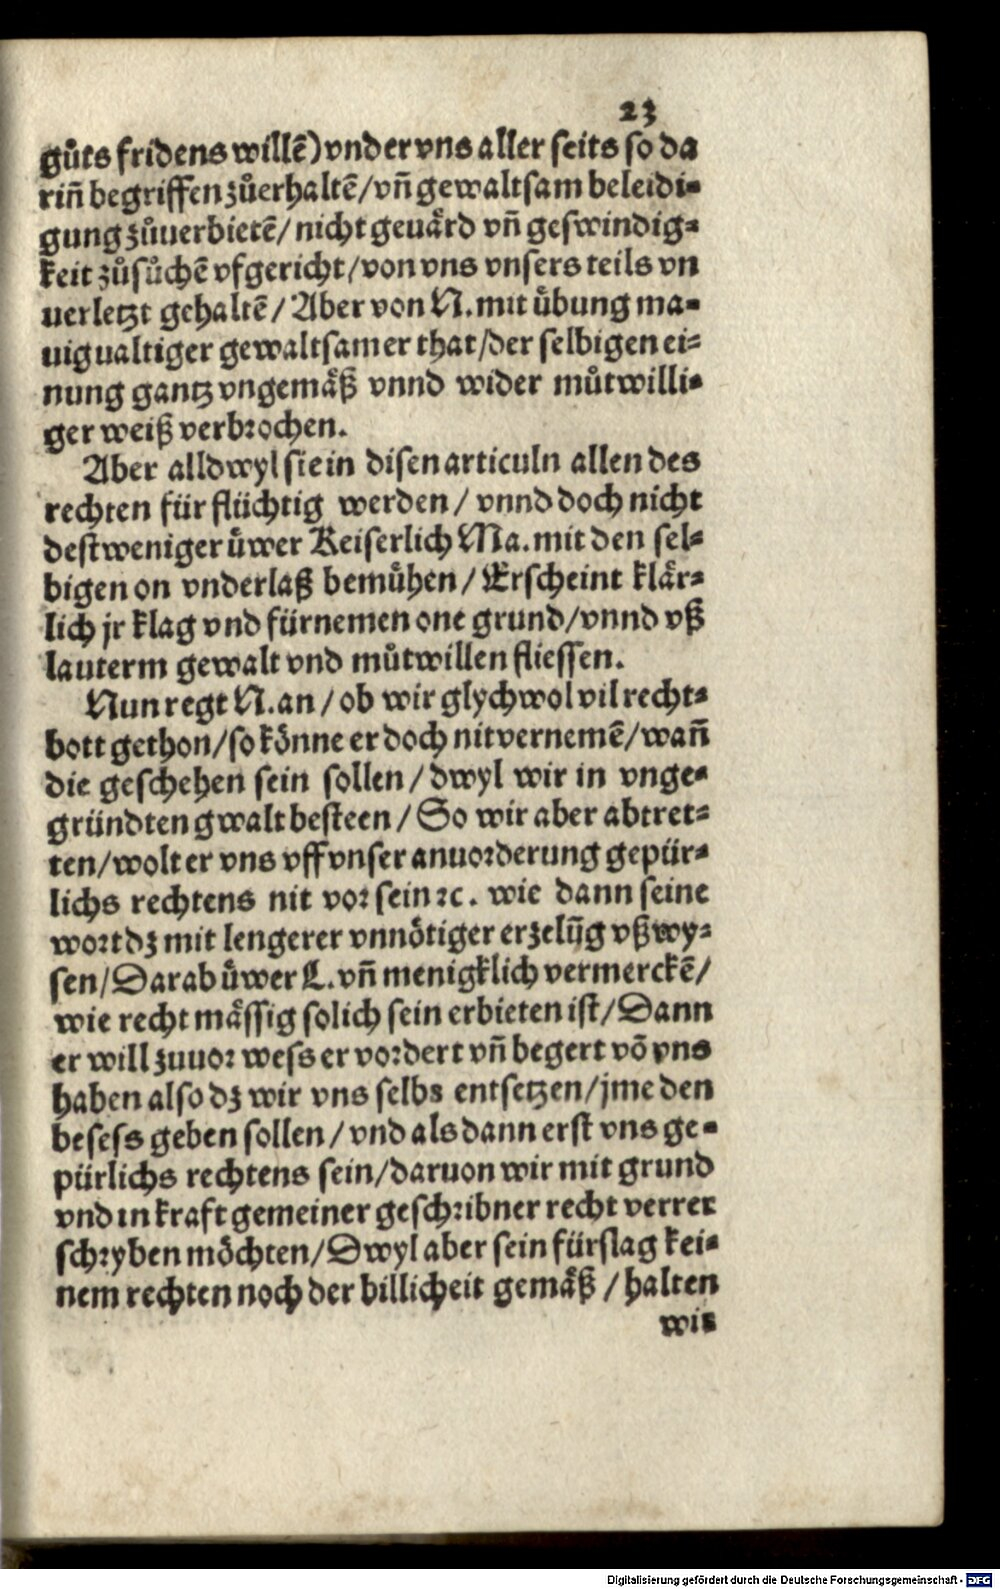 23
gůts fridens willē) vnder vns aller seits so da
riñ begriffen zůerhaltē/ vñ gewaltsam beleidi⸗
gung zůuerbietē/ nicht geuård vñ geswindig⸗
keit zůsůchē vfgericht/ von vns vnsers teils vn
uerletzt gehaltē/ Aber von N. mit ůbung ma⸗
uigualtiger gewaltsamer that/ der selbigen ei⸗
nung gantz vngemåß vnnd wider můtwilli⸗
ger weiß verbrochen.
Aber alldwyl sie in disen articuln allen des
rechten für flüchtig werden/ vnnd doch nicht
destweniger ůwer Keiserlich Ma. mit den sel⸗
bigen on vnderlaß bemůhen/ Erscheint klår⸗
lich jr klag vnd fürnemen one grund/ vnnd vß
lauterm gewalt vnd můtwillen fliessen.
Nun regt N. an/ ob wir glychwol vil recht⸗
bott gethon/ so kônne er doch nit vernemē/ wañ
die geschehen sein sollen/ dwyl wir in vnge⸗
gründten gwalt besteen/ So wir aber abtret⸗
ten/ wolt er vns vff vnser anuorderung gepür⸗
lichs rechtens nit vor sein ꝛc. wie dann seine
wort dz mit lengerer vnnôtiger erzelūg vßwy⸗
sen/ Darab ůwer L. vñ menigklich vermerckē/
wie recht måssig solich sein erbieten ist/ Dann
er will zuuor wess er vordert vñ begert võ vns
haben also dz wir vns selbs entsetzen/ jme den
besess geben sollen/ vnd als dann erst vns ge⸗
pürlichs rechtens sein/ daruon wir mit grund
vnd in kraft gemeiner geschribner recht verrer
schryben môchten/ Dwyl aber sein fürslag kei⸗
nem rechten noch der billicheit gemåß/ halten
wir
Digitalisierung gefördert durch die Deutsche Forschungsgemeinschaft - DFG